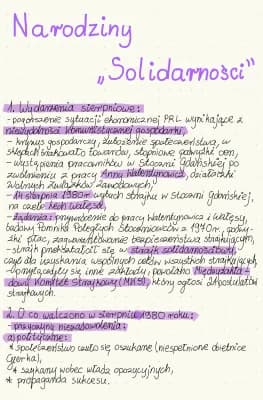 Narodziny
„Solidarności"
1. Wydarzenia sierpniowe:
- pogorszenie sytuacji ekonomicznej PRL wynikające z
niewydolności komunistycznej gospodarki,
- kryzys gospodarczy, zubożenie społeczeństwa, w
sklepach brakowało towarów, stopniowe podwyżki cen,
- wystąpienia pracowników w Stoczni Gdańskiej po
zwolnieniu z pracy Anny Walentynowicz, działaczki
Wolnych Związków Zawodowych,
- 14 sierpnia 1980r wybuch strajku w Stoczni Gdańskiej,
na czele Lech Wałęsa,
- żądania: przywrócenie do pracy Walentynowicz i Wałęsy,
budowa Pomnika Poległych Stoczniowców z 1970r., podwy-
żki płac, zagwarantowanie bezpieczeństwa strajkującym,
- strajk przekształcił się w strajk solidarnościowy,
czyli dla uzyskania wspólnych celów wszystkich strajkujących,
- przyłączyły się inne zakłady, powołano Międzyzakła-
dowy Komitet Strajkowy (MKS), który ogłosił 21 postulatów
strajkowych.
2. O co walczono w sierpniu 1980 roku:
- przyczyny niezadowolenia:
a) polityczne:
* społeczeństwo czuło się oszukane (niespełnione obietnice
Gierka),
* szykany wobec władz opozycyjnych,
* propaganda sukcesu.